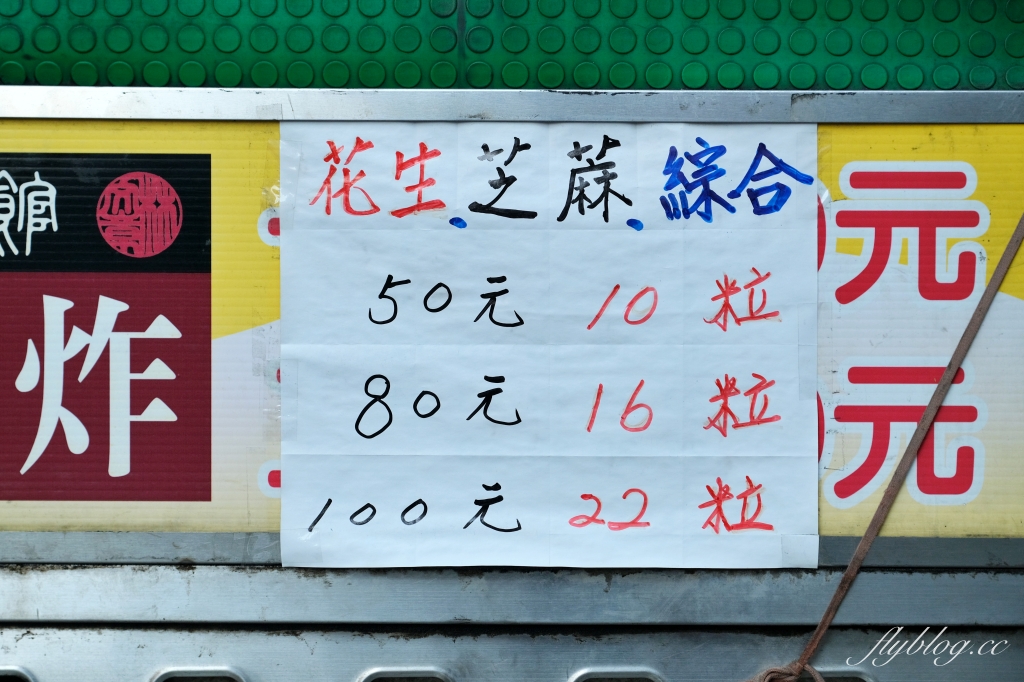 花生.芝蔴.綜合
50元 10粒
80元 16粒
100元 22粒
館
炸
元
元
flyblog.cc